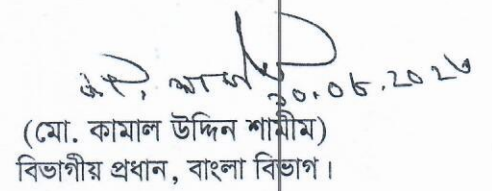 ২০.০৮.২০২৩
(মো. কামাল উদ্দিন শামীম)
বিভাগীয় প্রধান, বাংলা বিভাগ।